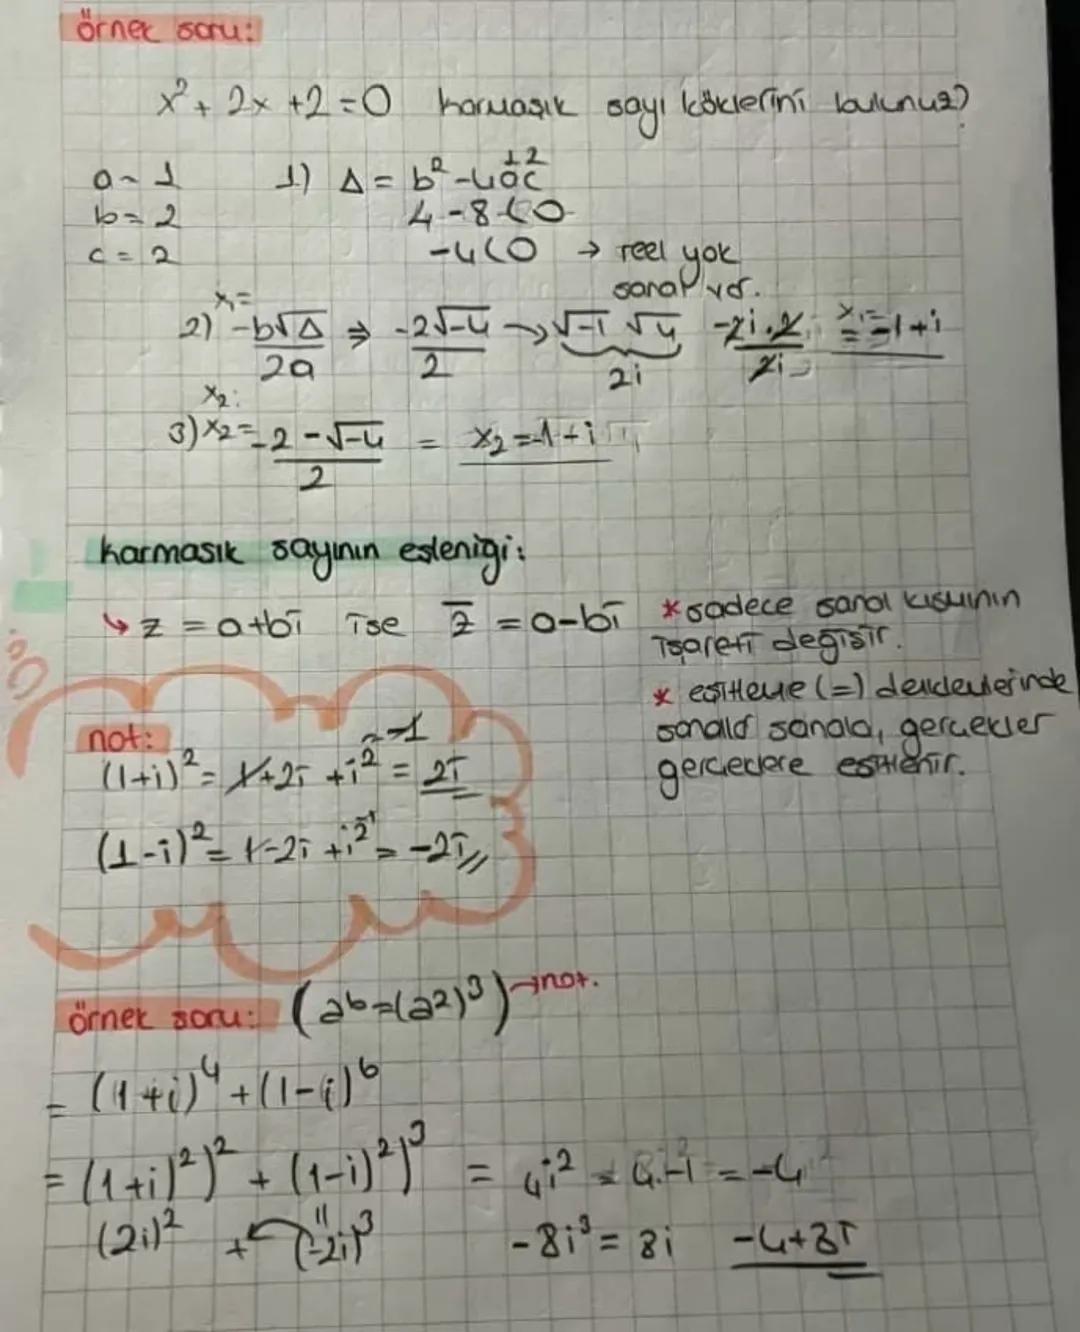 örnek soru:
x² + 2x + 2 = 0 karmaşık sayı köklerini bulunuz?
a = 1 1) Δ = b² - 4ac
b = 2 4 - 8 < 0
c = 2 -4 < 0 → reel yok
sanal var.
x₁ =
2) -b√Δ / 2a ⇒ -2√-4 / 2 → √-1 √4 = -1 + i
2i
x₂:
3) x₂ = -2 - √-4 / 2 = x₂ = -1 + i
karmasık sayının eslenigi:
↳ z = a + bi ise z̅ = a - bi
* sadece sanal kısmının
işareti değişir.
* eşitleme (=) denklemlerinde
sanala, gercekler
eşitlenir.
not:
(1+i)² = 1 + 2i + i² = 2i
-1
(1-i)² = 1 - 2i + i² = -2i
örnek soru: (a⁶ = (a²)³) → not.
= (1+i)⁴ + (1-i)⁶
= (1+i)²)² + (1-i)²)³ = 4i² = 4.-1 = -4
(2i)² + (-2i)³ -8i³ = 8i -4+8i